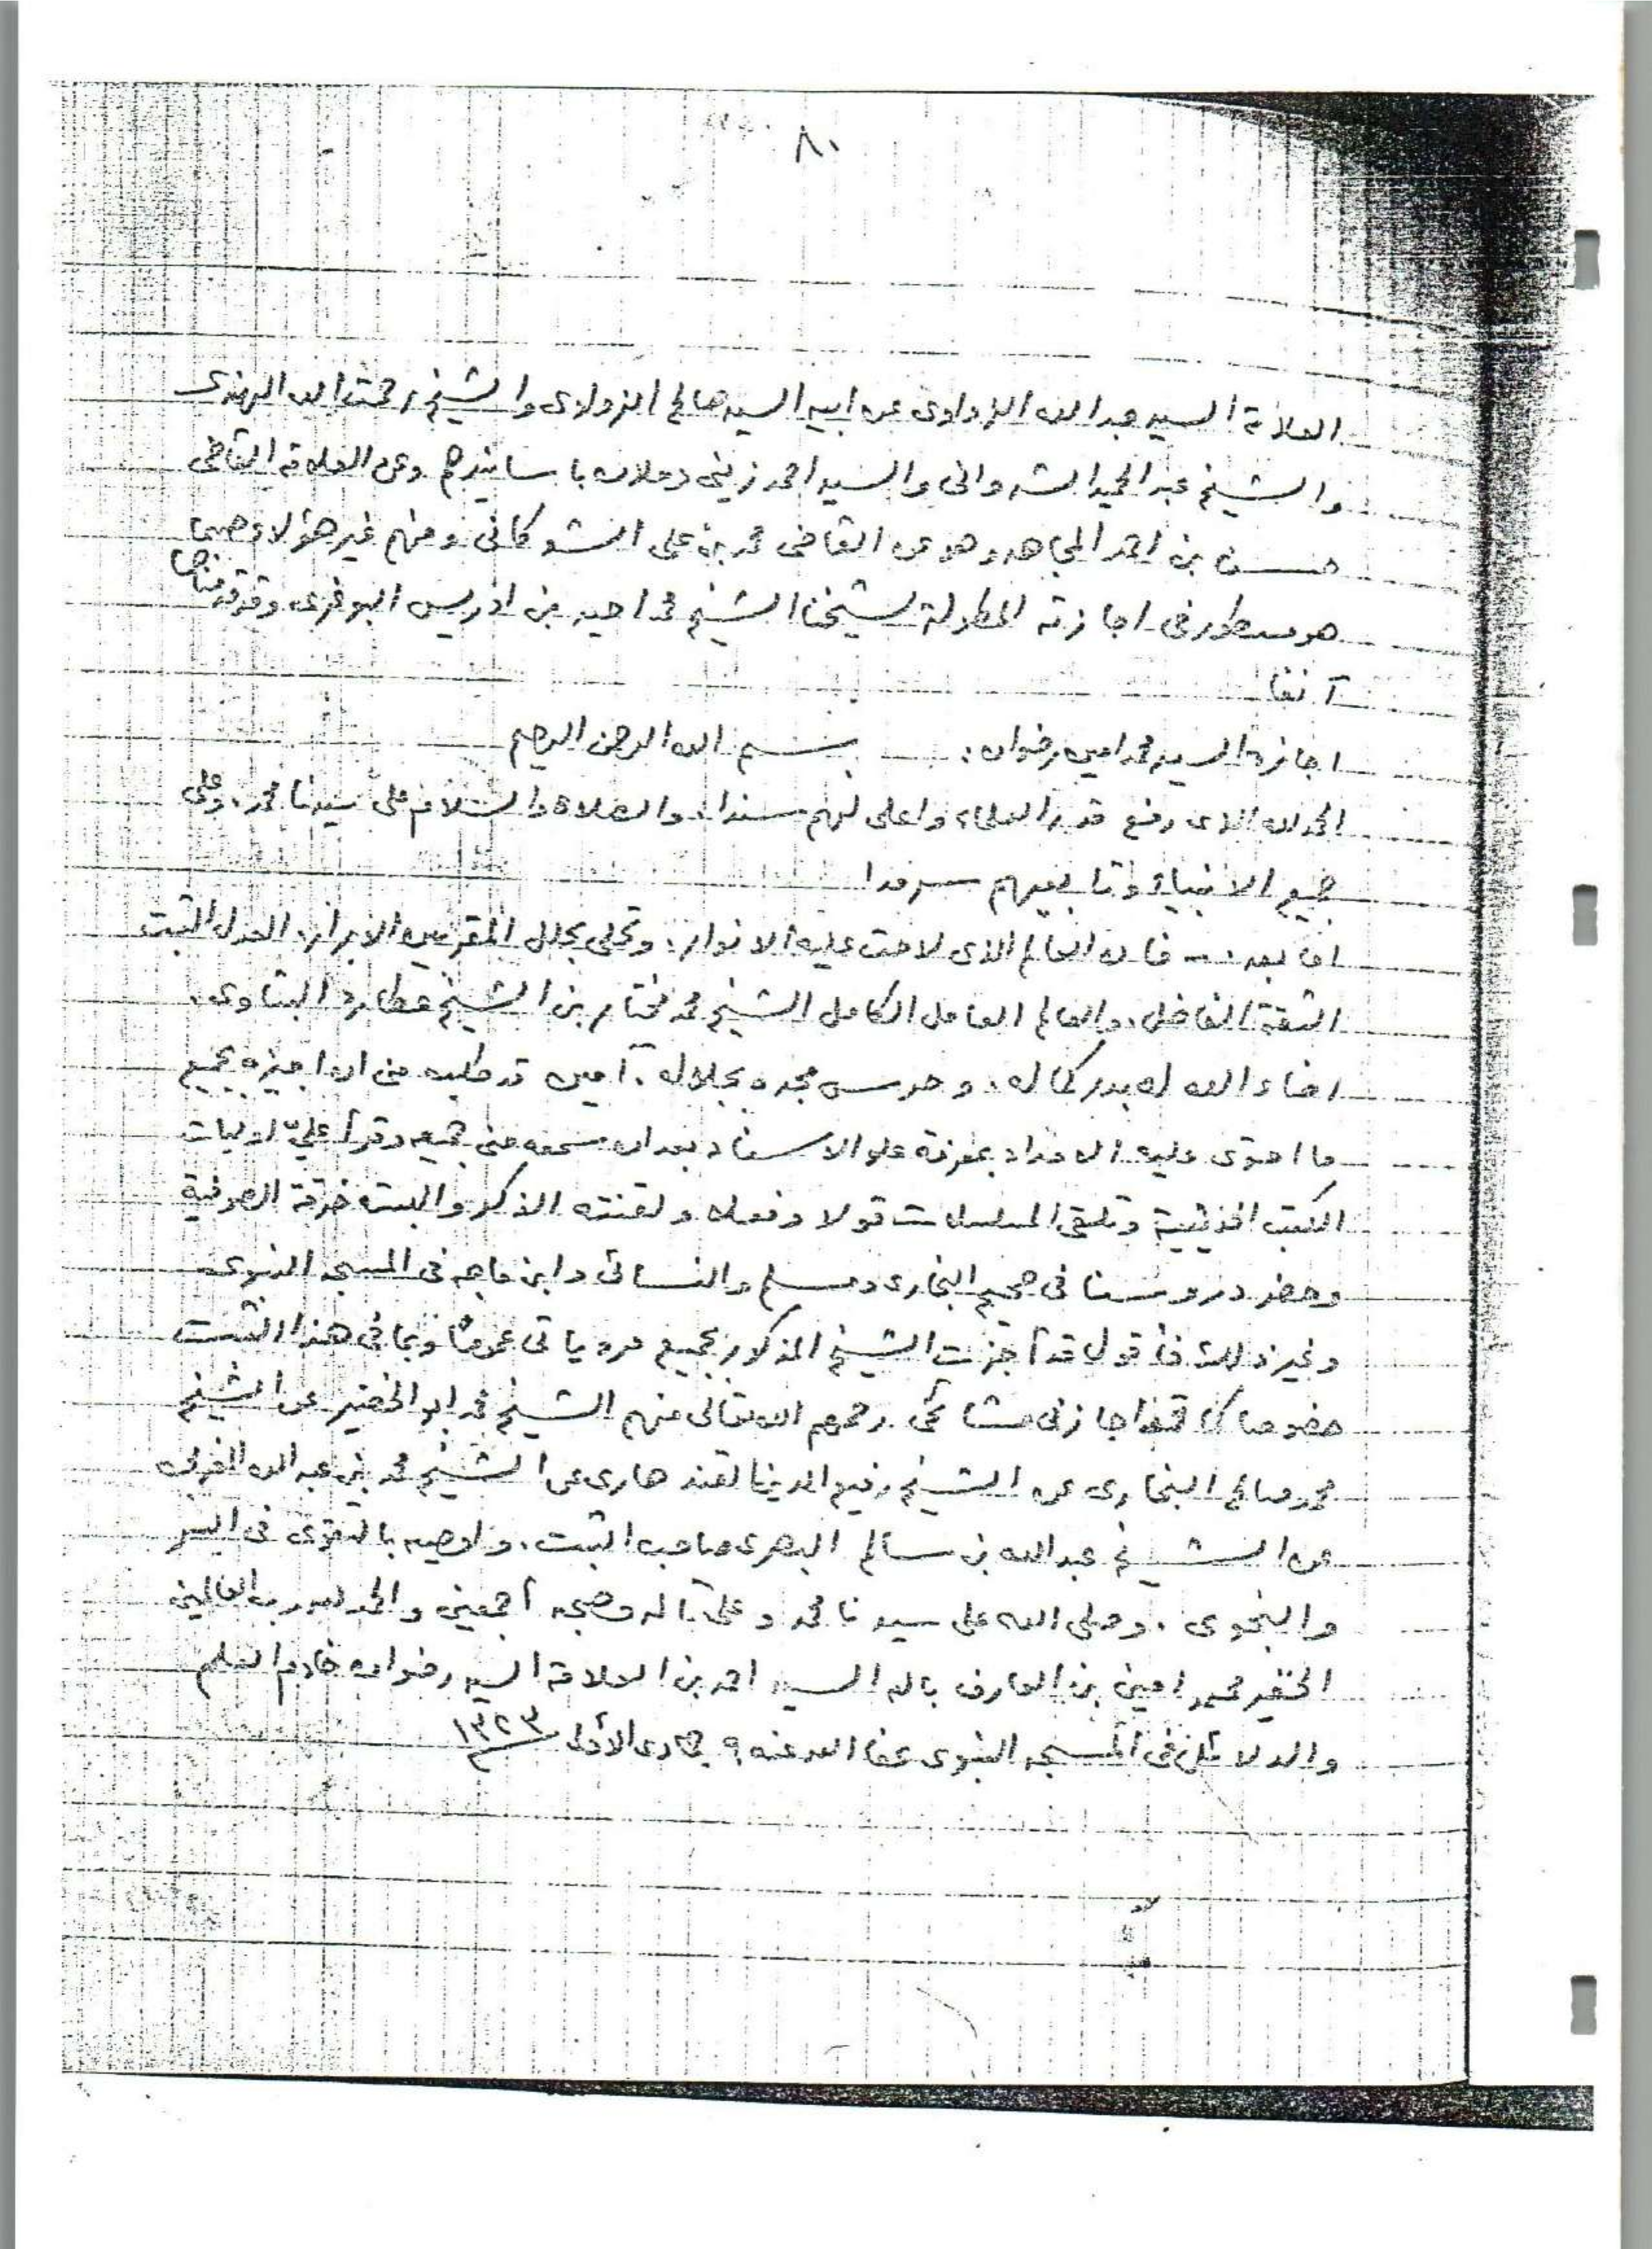 ٨٠
العلامة السيد عبد الله الزواوى عن ابيه السيد صالح الزواوى والشيخ رحمت الله الهندى
والشيخ عبد الحميد الشروانى والسيد احمد زينى دحلان باسانيدهم وعن العلامة القاضى
حسن بن احمد المجاهد وهو عن القاضى محمد بن على الشوكانى ومنهم غير هؤلاء حسبما
هو مسطور فى اجازته المطولة لشيخنا الشيخ محمد احيد بن ادريس البوغرى وقد قدمناها
آنفا
اجازة السيد محمد امين رضوان : بسم الله الرحمن الرحيم
الحمد لله الذى رفع قدر العلماء واعلى لهم سندا، والصلاة والسلام على سيدنا محمد، وعلى
جميع الانبياء وتابعيهم سرمدا
اما بعد .. فان العالم الذى لاحت عليه الانوار، وتحلى بحلل المقربين الابرار، العدل الثبت
الثقة الفاضل، والعالم العامل الكامل الشيخ محمد مختار بن الشيخ عطارد البتاوى،
اضاء الله له بدر كماله، وحرس مجده بجلاله . آمين قد طلب منى ان اجيزه بجميع
ما احتوى عليه الامداد بمعرفة علو الاسناد بعد ان سمعه منى جميعه وقرأ علىّ اوليات
الكتب الحديثية وتلقى المسلسلات قولا وفعلا ولقنته الذكر والبسته خرقة الصوفية
وحضر دروسنا فى صحيح البخارى ومسلم والنسائى وابن ماجه فى المسجد النبوى
وغير ذلك فأقول قد أجزت الشيخ المذكور بجميع مروياتى عموما وبما فى هذا الثبت
خصوصا كما قد اجازنى مشائخى رحمهم الله تعالى منهم الشيخ محمد ابو الخضير عن الشيخ
محمد صالح البخارى عن الشيخ رفيع الدين القندهارى عن الشيخ محمد بن عبد الله المغربى
عن الشيخ عبد الله بن سالم البصرى صاحب الثبت، واوصيه بالتقوى فى السر
والنجوى . وصلى الله على سيدنا محمد وعلى آله وصحبه أجمعين والحمد لله رب العالمين
الحقير محمد امين بن العارف بالله السيد احمد بن العلامة السيد رضوان خادم العلم
والدلائل فى المسجد النبوى عفا الله عنه ٩ جمادى الأولى ١٣٢٣